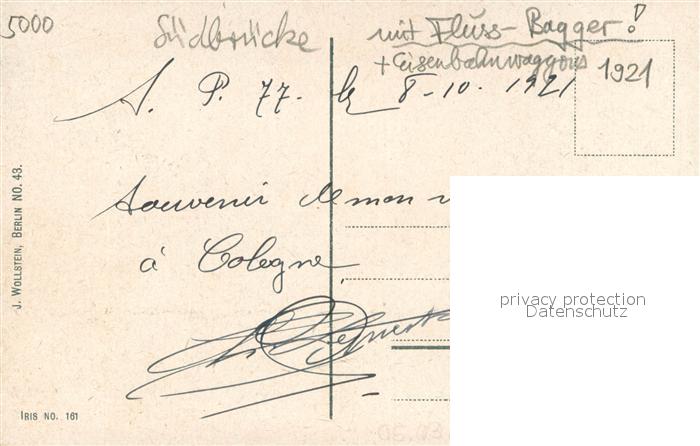 5000
Südbrücke
mit Fluss-Bagger!
+ Eisenbahnwaggons
1921
S. P. 77. le 8-10. 1921
Souvenir de mon
à Cologne
privacy protection
Datenschutz
J. WOLLSTEIN, BERLIN NO. 43.
IRIS NO. 161